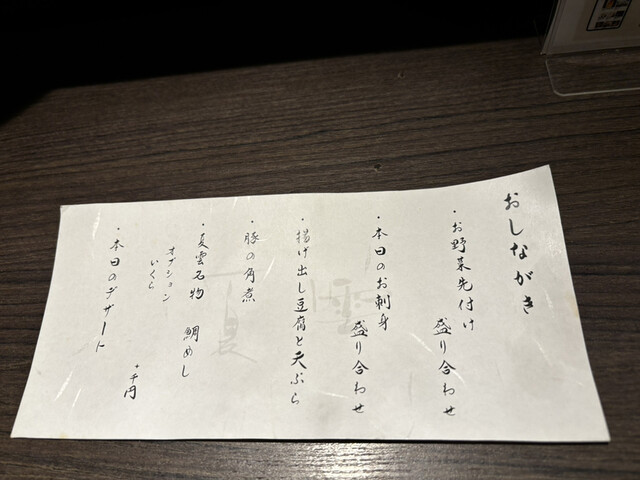 おしながき
・お野菜先付け
盛り合わせ
・本日のお刺身
盛り合わせ
・揚げ出し豆腐と天ぷら
・豚の角煮
・夏雲名物 鯛めし
オプション
いくら
+千円
・本日のデザート